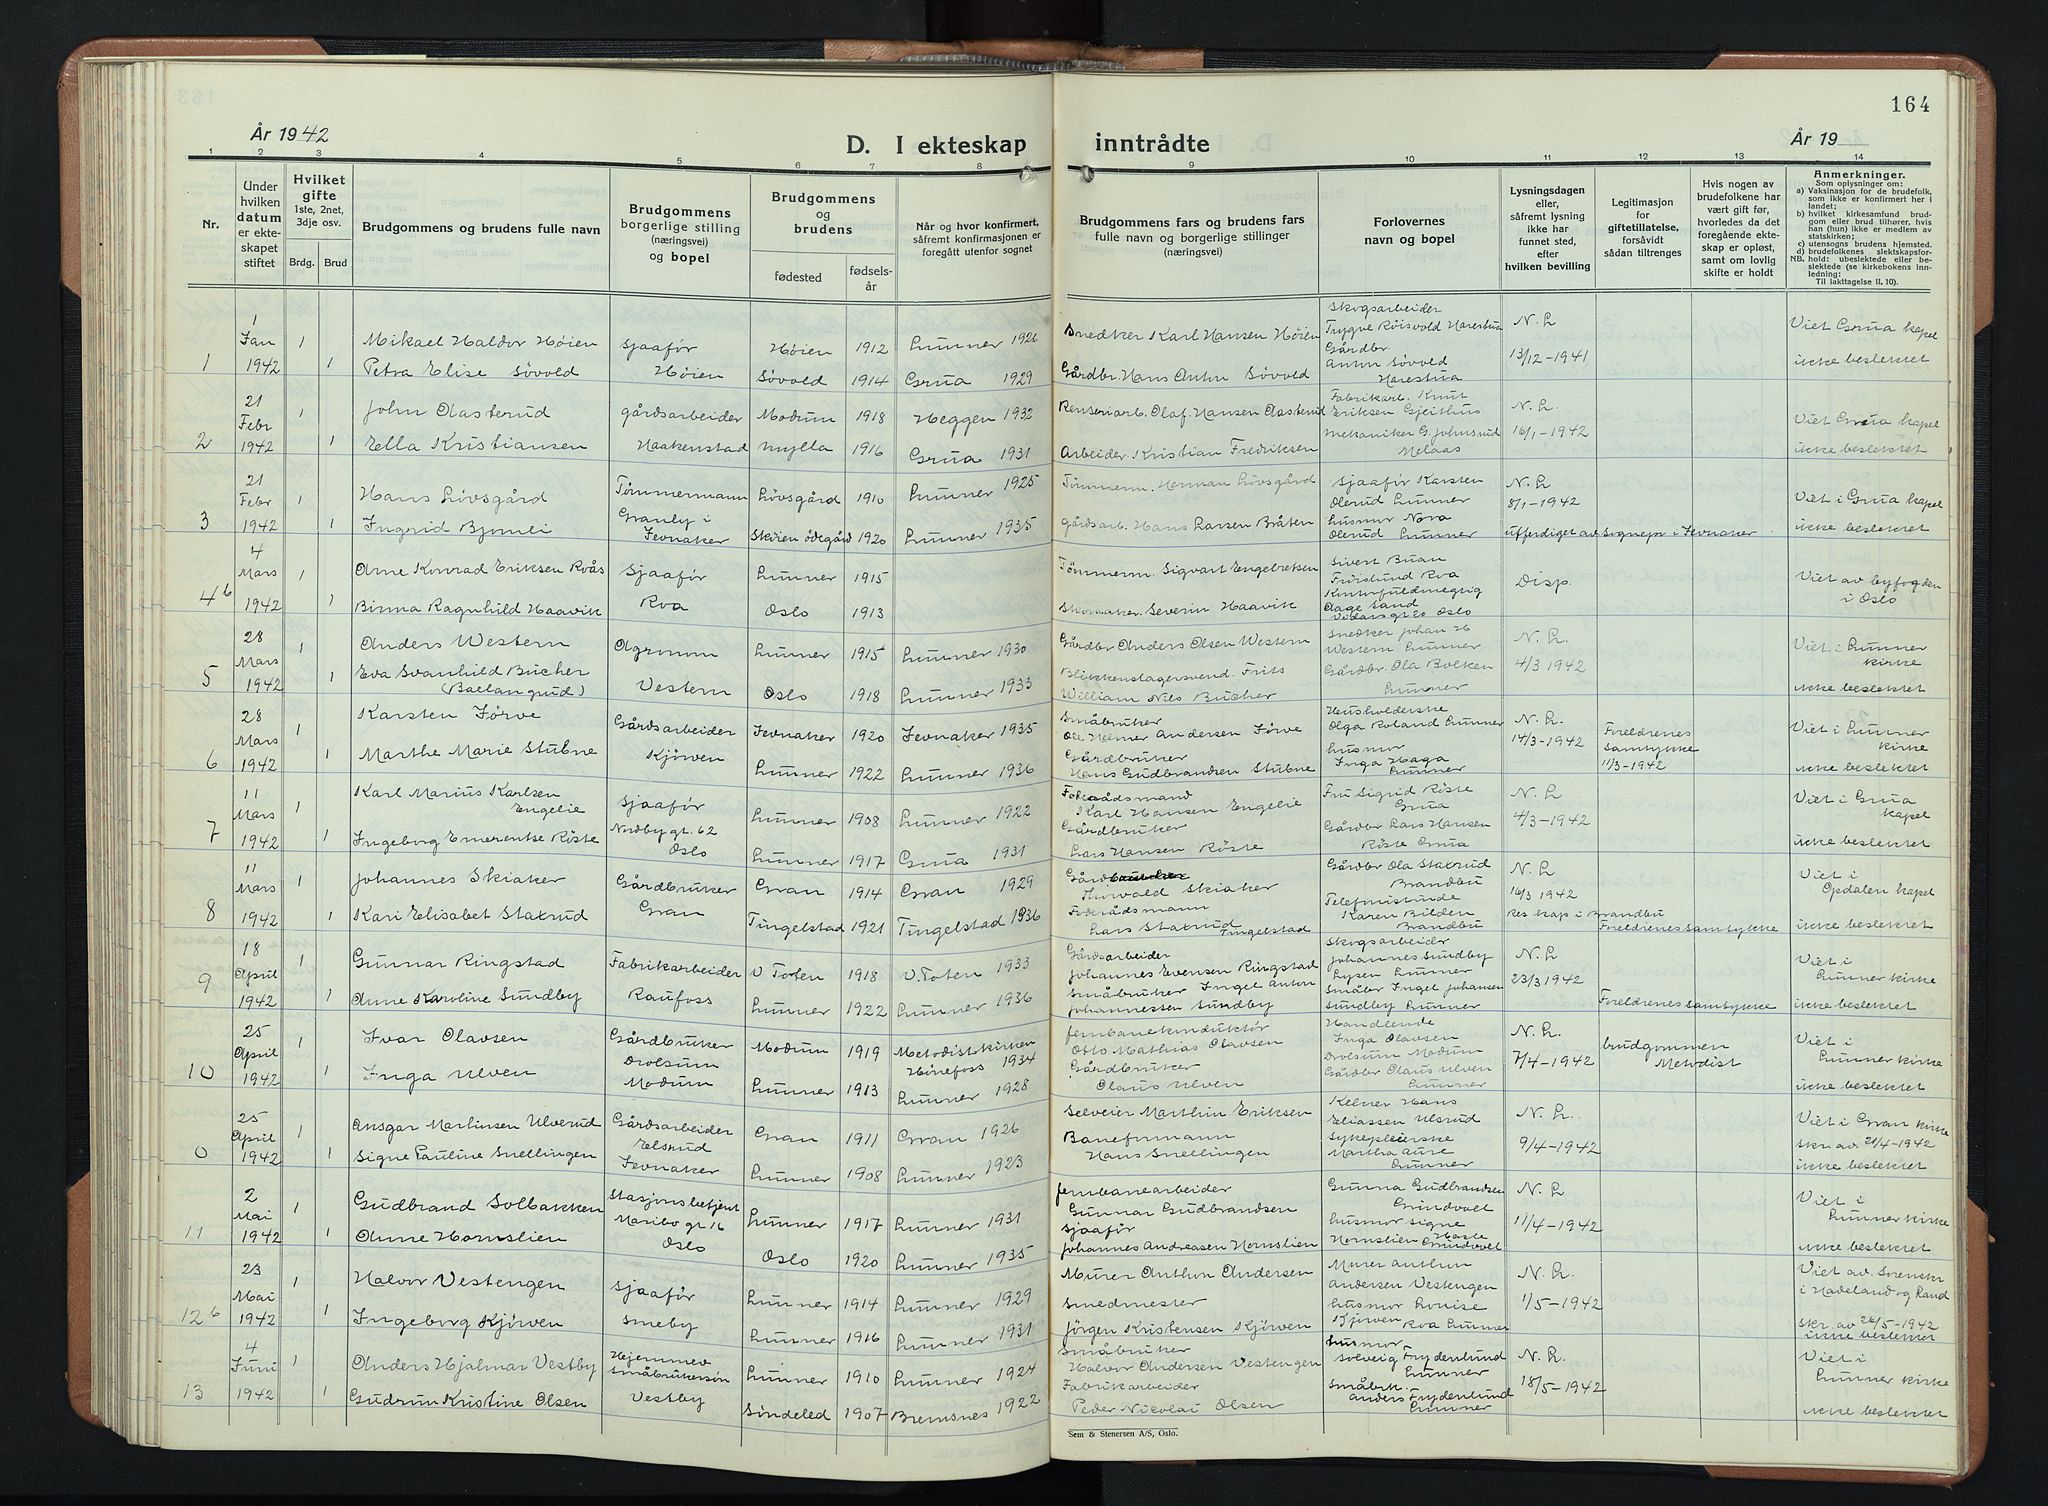 164
År 1942
D. I ekteskap inntrådte
År 19
1 2 3 4 5 6 7 8 9 10 11 12 13 14
Nr.
Under hvilken datum er ekteskapet stiftet
Hvilket gifte 1ste, 2net, 3dje osv.
Brdg. Brud
Brudgommens og brudens fulle navn
Brudgommens borgerlige stilling (næringsvei) og bopel
Brudgommens og brudens
fødested
fødselsår
Når og hvor konfirmert, såfremt konfirmasjonen er foregått utenfor sognet
Brudgommens fars og brudens fars fulle navn og borgerlige stillinger (næringsvei)
Forlovernes navn og bopel
Lysningsdagen eller, såfremt lysning ikke har funnet sted, efter hvilken bevilling
Legitimasjon for giftetillatelse, forsåvidt sådan tiltrenges
Hvis nogen av brudefolkene har vært gift før, hvorledes da det foregående ekteskap er opløst, samt om lovlig skifte er holdt
Anmerkninger.
Som oplysninger om:
a) Vaksinasjon for de brudefolk, som ikke er konfirmert her i landet;
b) hvilket kirkesamfund brudgom eller brud tilhører, hvis han (hun) ikke er medlem av statskirken;
c) utensogns brudens hjemsted.
d) brudefolkenes slektskapsforhold: ubeslektede eller beslektede (se kirkebokens innledning:
NB. Til iakttagelse II. 10).
1 1 Jan 1942 1 1
Mikael Haldor Høien Sjaafør Høien 1912 Lunner 1926 Snedker Karl Hansen Høien Skogsarbeider Trygve Røisvold Harestua N. L. Viet Grua kapel
Petra Elise Søvold Høien Søvold 1914 Grua 1929 Gårdbr. Hans Anton Søvold Gårdbr. Anton Søvold Harestua 13/12-1941 ikke beslektet
2 21 Febr 1942 1 1
John Aasterud gårdsarbeider Modum 1918 Heggen 1932 Renseriarb. Olaf Hansen Aasterud Fabrikarb. Knut Eriksen Gjeithus N. L. Viet Grua kapel
Ella Kristiansen Haakenstad Mylla 1916 Grua 1931 Arbeider Kristian Fredriksen mekaniker G. Johnsrud Melaas 16/1-1942 ikke beslektet
3 21 Febr 1942 1 1
Hans Lövsgård Tømmermann Lövsgård 1910 Lunner 1925 Tømmerm. Herman Lövsgård Sjaafør Karsten Olerud Lunner N. L. 8/1-1942 Viet i Grua kapel
Ingrid Bjonli Granly i Jevnaker Skøien ødegård 1920 Lunner 1935 gårdsarb. Hans Larsen Bråten husmor Nora Olerud Lunner utferdiget av sognepr i Jevnaker ikke beslektet
4b 4 Mars 1942 1 1
Arne Konrad Eriksen Roås Sjaafør Lunner 1915 Tømmerm. Sigvart Engebretsen Sivert Buan Frøislund Roa Disp. Viet av byfogden i Oslo
Birma Ragnhild Haavik Roa Oslo 1913 Skomaker. Severin Haavik Aage Sand Oslo
5 28 Mars 1942 1 1
Anders Western Agronom Lunner 1915 Lunner 1930 Gårdbr Anders Olsen Western Snedker Johan H Western Lunner N. L. Viet i Lunner kirke
Eva Svanhild Bucher (Baelangrud) Vestern Oslo 1918 Lunner 1933 Blikkenslagersvend. Frits William Nils Bucher Gårdbr Ola Bolken Lunner 4/3 1942 ikke beslektet
6 28 Mars 1942 1 1
Karsten Jørve Gårdsarbeider Jevnaker 1920 Jevnaker 1935 Småbruker Ole Helmer Andersen Jørve Husholderske Olga Roland Lunner N. L. 14/3-1942 Foreldrenes samtykke 11/3-1942 Viet i Lunner kirke
Marthe Marie Stubne Kjørven Lunner 1922 Lunner 1936 Gårdbruker Hans Gudbrandsen Stubne husmor Inga Haga Lunner ikke beslektet
7 11 Mars 1942 1 1
Karl Marius Karlsen Engelie Sjaafør Lunner 1908 Lunner 1922 Karl Hansen Engelie Fru Sigrid Röste Grua N. L 4/3-1942 Viet i Grua kapel
Ingeborg Emerentse Röste Nordby gt. 62 Oslo Lunner 1917 Grua 1931 Gårdbruker Lars Hansen Röste Gårdbr Lars Hansen Röste Grua ikke beslektet
8 11 Mars 1942 1 1
Johannes Skiaker Gårdbruker Gran 1914 Gran 1929 Thorvald Skiaker Gårdbr Ola Staxrud Brandbu N. L 16/3 1942 Viet i Opdalen kapel
Kari Elisabet Staxrud Gran Tingelstad 1921 Tingelstad 1936 Föderådsmann Lars Staxrud Tingelstad Telefonistinde Karen Bilden Brandbu Res kap i Brandbu Foreldrenes samtykke ikke beslektet
9 18 April 1942 1 1
Gunnar Ringstad Fabrikarbeider V Toten 1918 V. Toten 1933 Gårdsarbeider Johannes Evensen Ringstad Skogsarbeider Johannes Sundby Lysen Lunner N. L 23/3 1942 Viet i Lunner kirke
Anne Karoline Sundby Raufoss Lunner 1922 Lunner 1936 Småbruker Ingel Anton Johannessen Sundby Småbr Ingel Johansen Sundby Lunner Foreldrenes samtykke ikke beslektet
10 25 April 1942 1 1
Ivar Olavsen Gårdbruker Modum 1919 Metodistkirken Hönefoss 1934 Jernbanekonduktør Otto Mathias Olavsen Handlende Inga Olavsen Drolsum Modum N. L. 7/4-1942 brudgommen Metodist Viet i Lunner kirke
Inga Ulven Drolsum Modum Lunner 1913 Lunner 1928 Gårdbruker Olaus Ulven Gårdbr Olaus Ulven Lunner ikke beslektet
0 25 April 1942 1 1
Ansgar Martinsen Ulverud Gårdsarbeider Gran 1911 Gran 1926 Selveier Marthin Eriksen Kelner Hans Eliassen Ulsrud N. L. Viet i Gran kirke
Signe Pauline Snellingen Elsrud Jevnaker Lunner 1908 Lunner 1923 Baneformann Hans Snellingen Sykepleierske Martha Aure Lunner 9/4-1942 skr. av 26/4-1942 ikke beslektet
11 2 Mai 1942 1 1
Gudbrand Solbakken Stasjonsbetjent Lunner 1917 Lunner 1931 Jernbanearbeider Gunnar Gudbrandsen Gunna Gudbrandsen Grindvoll N. L 11/4-1942 Viet i Lunner kirke
Anne Hornslien Maribo gt 16 Oslo Oslo 1920 Lunner 1935 Sjaafør Johannes Andreasen Hornslien husmor Signe Hornslien Haste Grindvoll ikke beslektet
12b 23 Mai 1942 1 1
Halvor Vestengen Sjaafør Lunner 1914 Lunner 1929 Murer Anthon Andersen Murer Anthon Andersen Vestengen N. L. Viet av. Sorenskr i Hadeland og Land
Ingeborg Kjørven Smeby Lunner 1916 Lunner 1931 Smedmester Jörgen Kristensen Kjørven husmor Louise Kjørven Roa Lunner 1/5-1942 skr. av 26/5-1942 ikke beslektet
13 4 Juni 1942 1 1
Anders Hjalmar Vestby Hjemmev småbrukersøn Lunner 1910 Lunner 1924 Småbruker Halvor Andersen Vestengen husmor Solveig Frydenlund Lunner N. L. Viet i Lunner kirke
Gudrun Kristine Olsen Vestby Söndeled 1907 Bremsnes 1922 Fabrikarbeider Peder Nicolai Olsen Småbrk. Anders Frydenlund Lunner 18/5-1942 ikke beslektet
Sem & Stenersen A/S, Oslo.